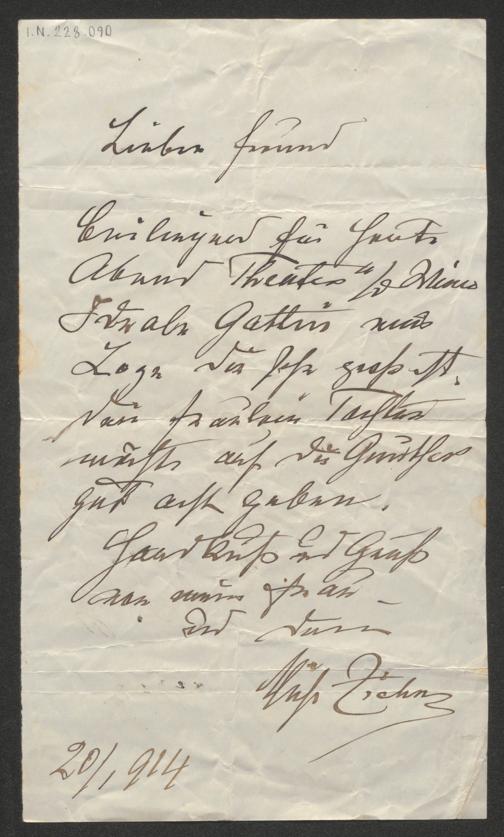 I.N. 228.090
Lieber Freund
Beiliegend für heute
Abend Theater
Ideale Gattin eine
Loge die sehr groß ist.
Dein Fräulein Tochter
möchte auf die Günther
gut acht geben.
Handkuß und Gruß
von meiner Frau
und Dein
Ziehrer
20/1 914